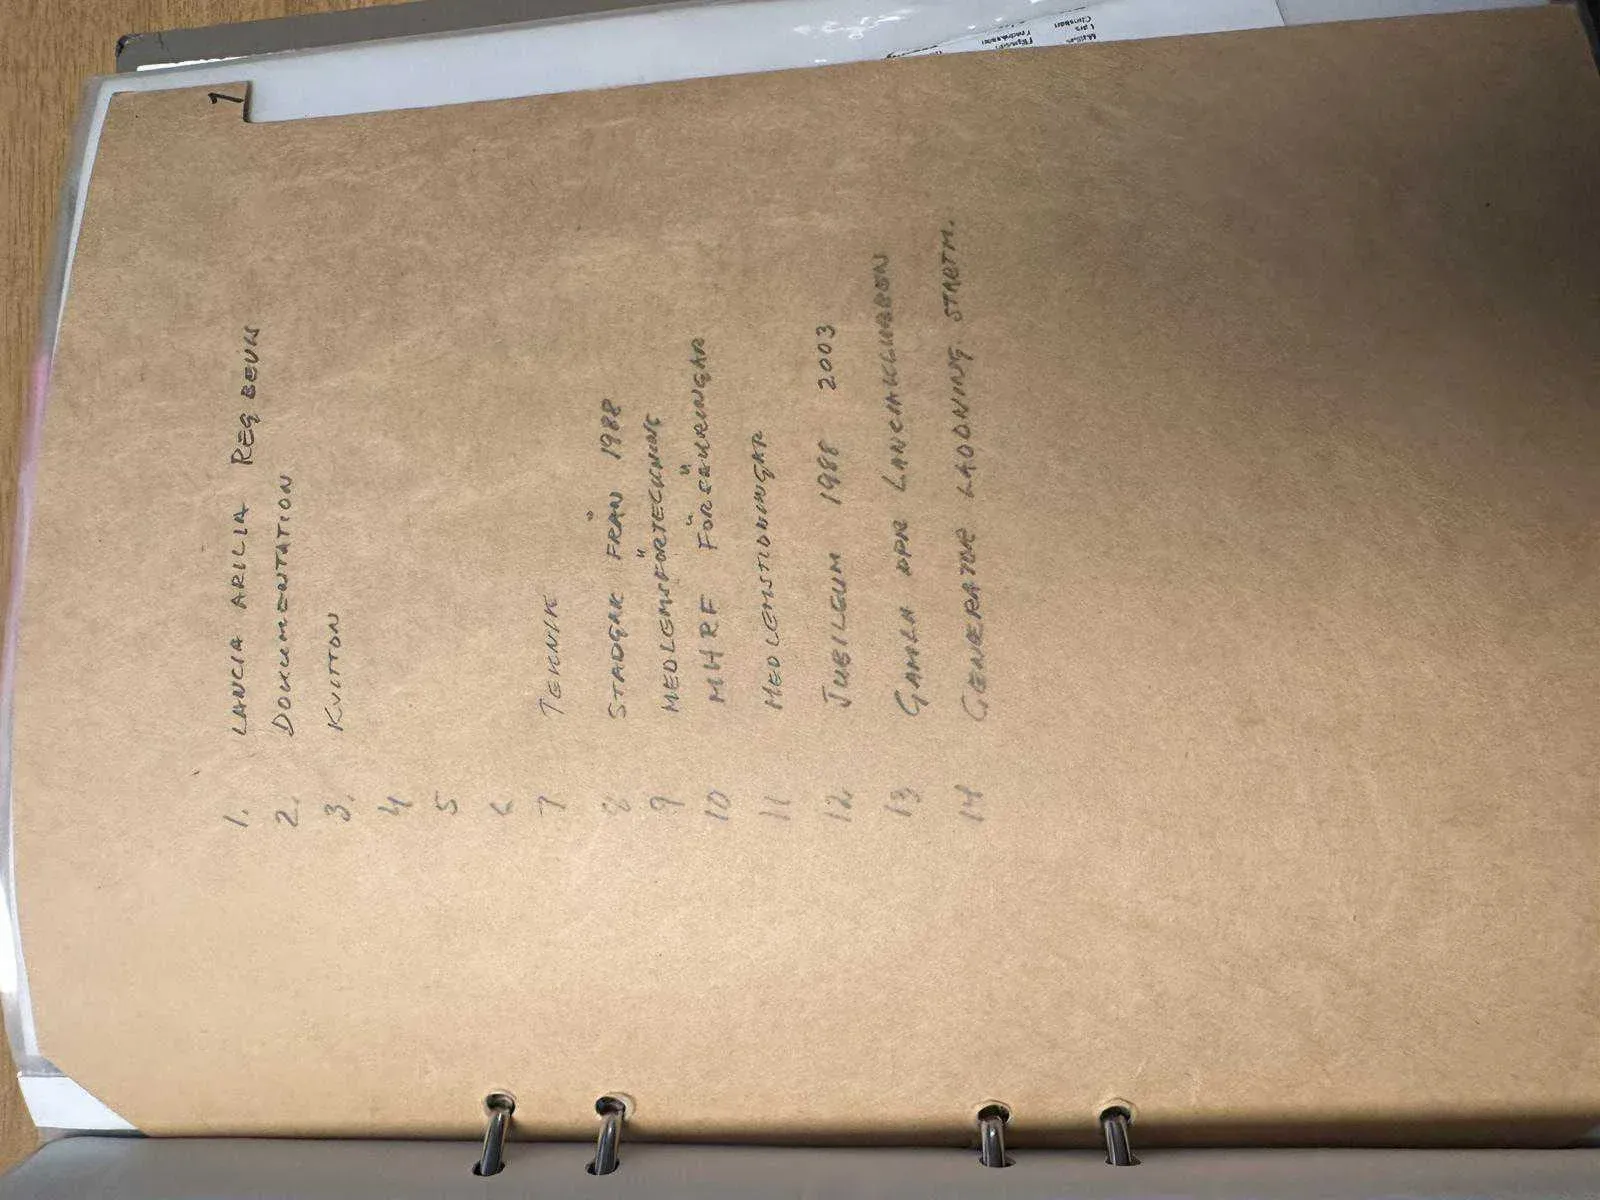 1
1. LANCIA ARILIA REG BEVIS
2. DOKUMENTATION
3. KVITTON
4
5
6
7 TEKNIK
8 STADGAR FRÅN 1988
9 MEDLEMSFÖRTECKNING
10 MHRF FÖRSÄKRINGAR
11 MEDLEMSTIDNINGAR
12 JUBILEUM 1988 2003
13 GAMLA LANCIAKLUBBEN
14 GENERATOR LADDNING. STARTM.